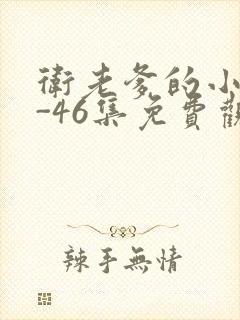 衛老爹的小
-46集免費觀
辣手無情